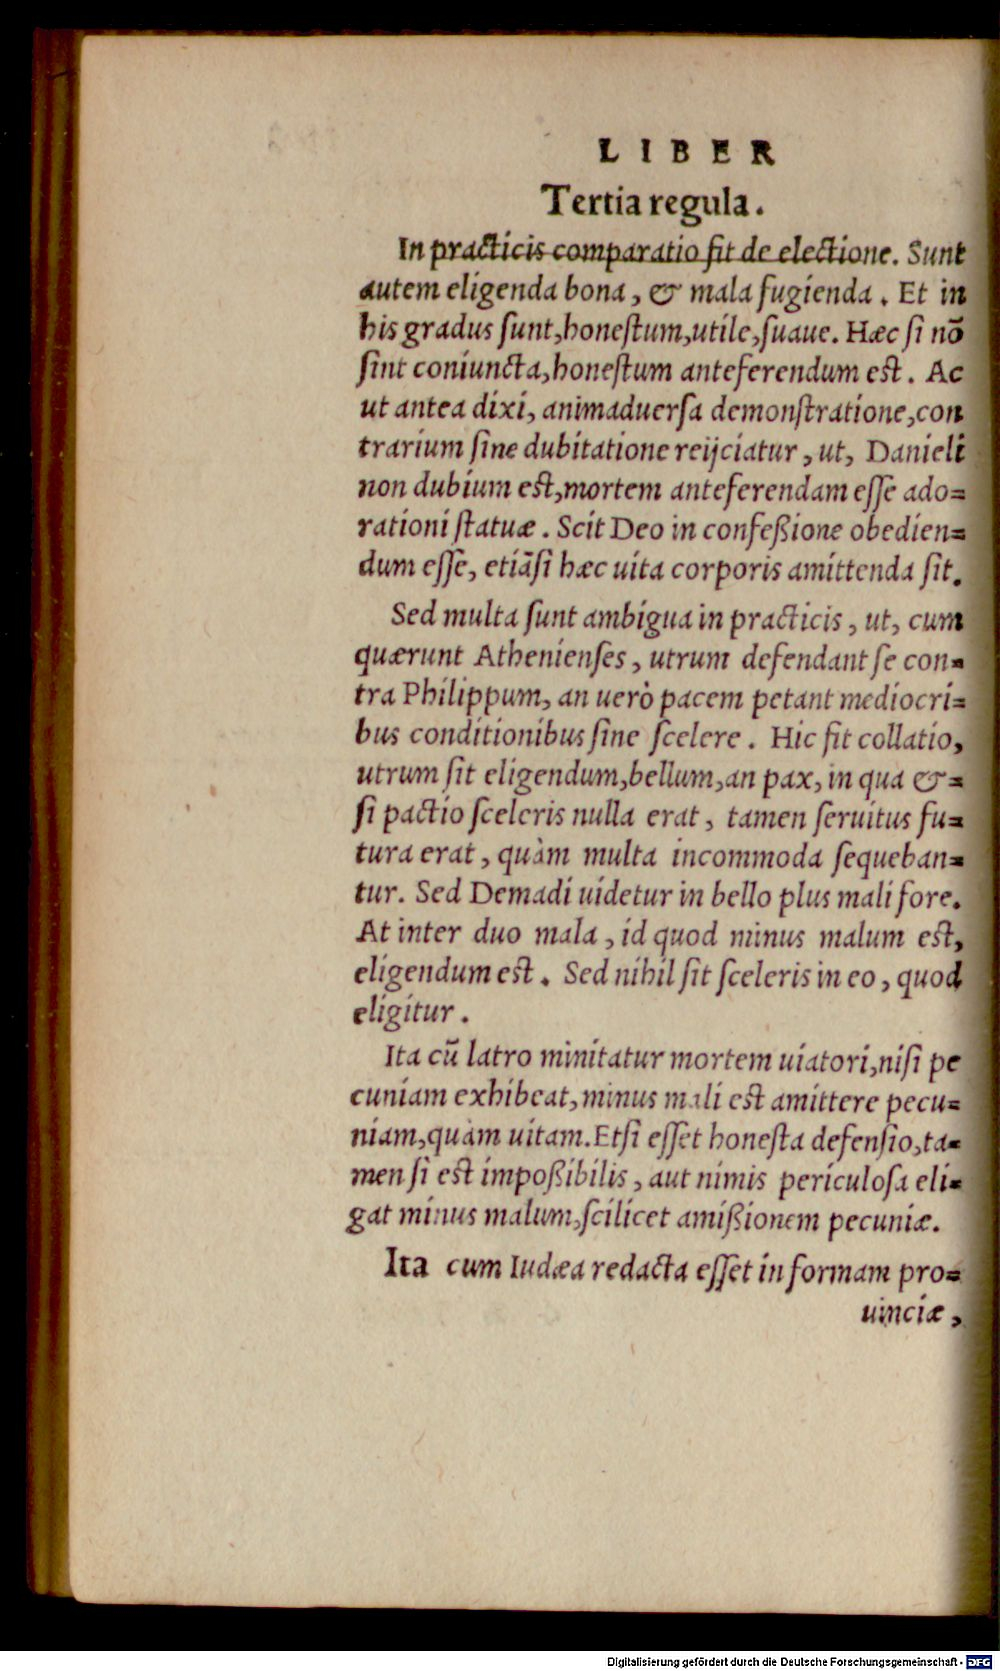 LIBER
Tertia regula.
In practicis comparatio fit de electione. Sunt
autem eligenda bona, & mala fugienda. Et in
his gradus sunt, honestum, utile, suaue. Hæc si nō
sint coniuncta, honestum anteferendum est. Ac
ut antea dixi, animaduersa demonstratione, con
trarium sine dubitatione reijciatur, ut, Danieli
non dubium est, mortem anteferendam esse ado=
rationi statuæ. Scit Deo in confeßione obedien=
dum esse, etiāsi hæc uita corporis amittenda sit.
Sed multa sunt ambigua in practicis, ut, cum
quærunt Athenienses, utrum defendant se con=
tra Philippum, an uerò pacem petant mediocri=
bus conditionibus sine scelere. Hic fit collatio,
utrum sit eligendum, bellum, an pax, in qua &=
si pactio sceleris nulla erat, tamen seruitus fu=
tura erat, quàm multa incommoda sequeban=
tur. Sed Demadi uidetur in bello plus mali fore.
At inter duo mala, id quod minus malum est,
eligendum est. Sed nihil sit sceleris in eo, quod
eligitur.
Ita cū latro minitatur mortem uiatori, nisi pe
cuniam exhibeat, minus mali est amittere pecu=
niam, quàm uitam. Etsi esset honesta defensio, ta=
men si est impoßibilis, aut nimis periculosa eli=
gat minus malum, scilicet amißionem pecuniæ.
Ita cum Iudæa redacta esset in formam pro=
uinciæ,
Digitalisierung gefördert durch die Deutsche Forschungsgemeinschaft - DFG